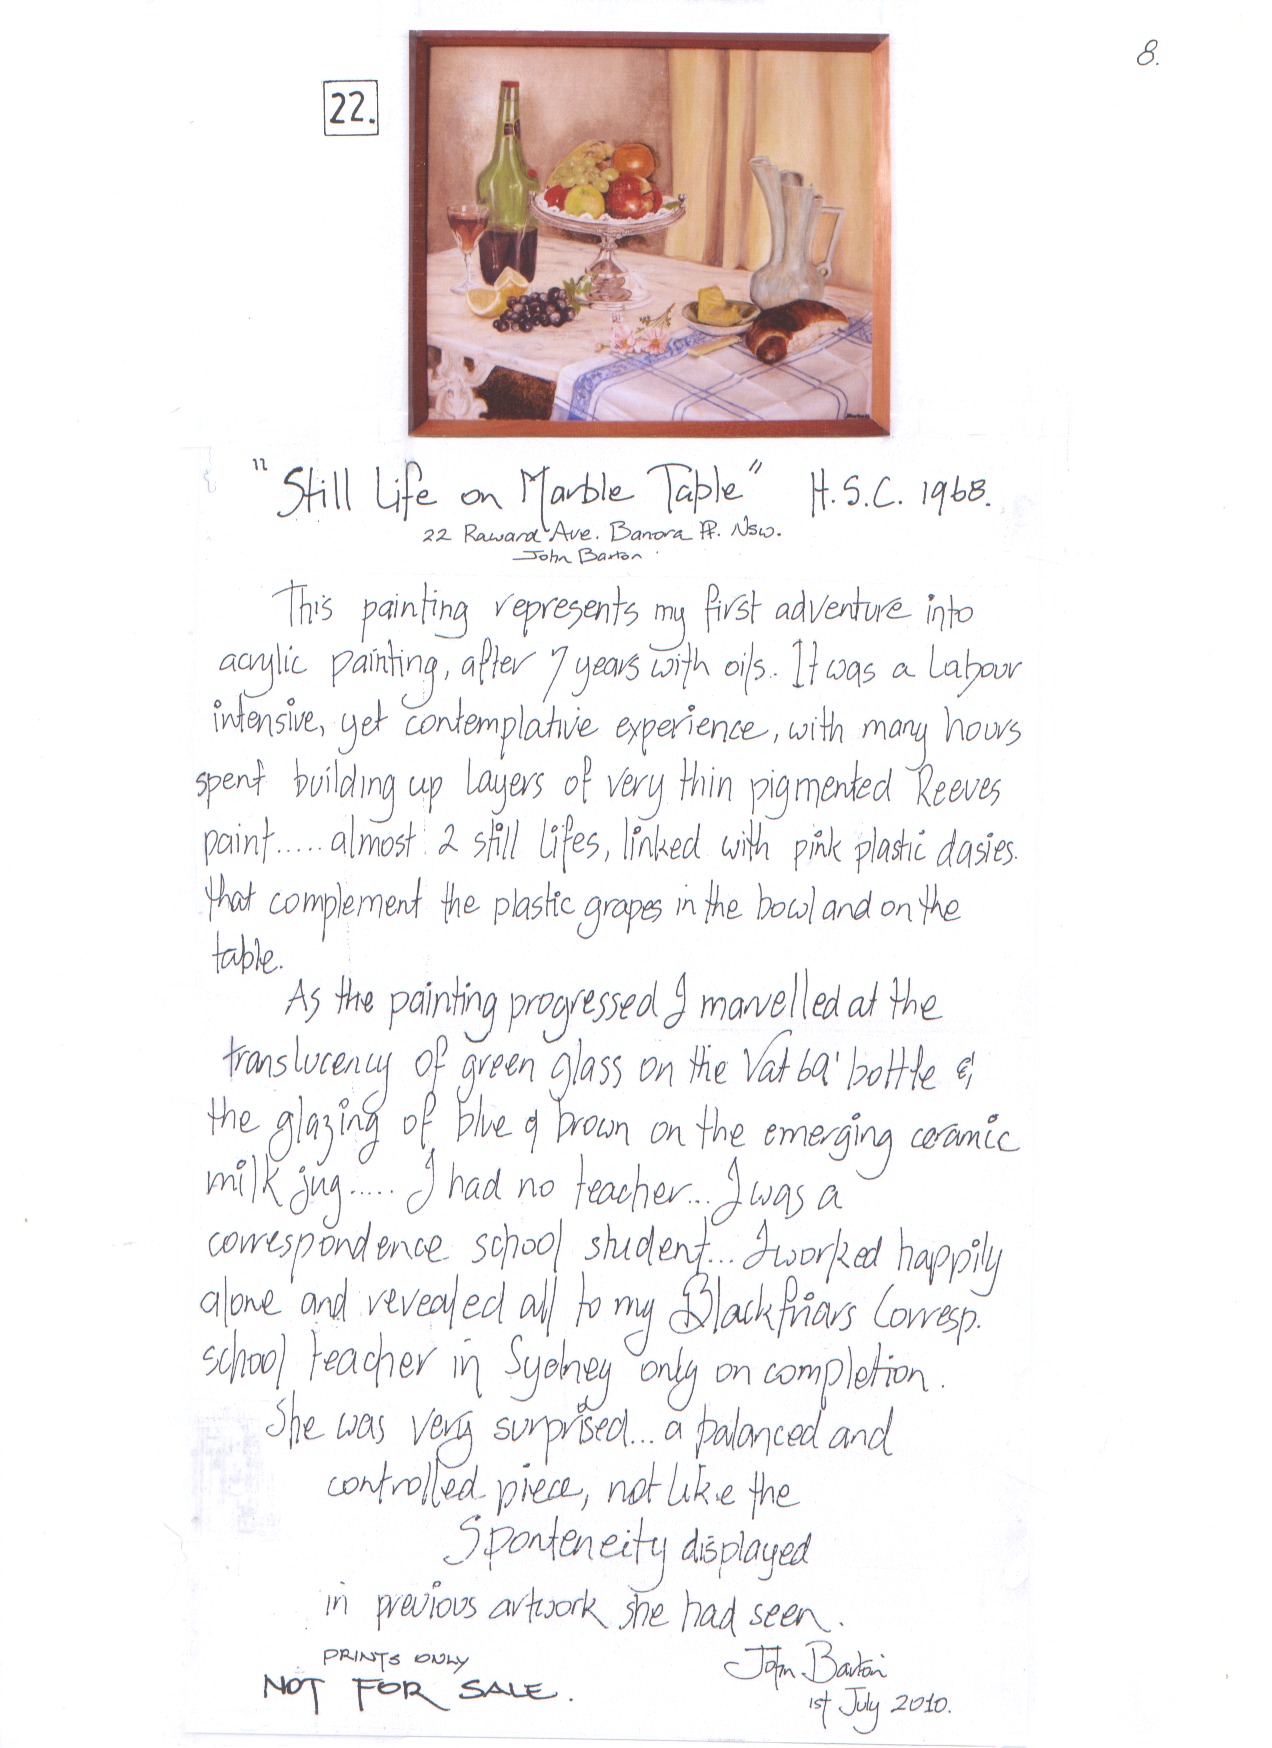 8.
22.
"Still Life on Marble Table" H.S.C. 1968.
22 Raward Ave. Banora Pt. NSW.
John Barton
This painting represents my first adventure into
acrylic painting, after 7 years with oils. It was a Labour
intensive, yet contemplative experience, with many hours
spent building up layers of very thin pigmented Reeves
paint..... almost 2 still lifes, linked with pink plastic dasies.
that complement the plastic grapes in the bowl and on the
table.
As the painting progressed I marvelled at the
translucency of green glass on the Vat 69' bottle &
the glazing of blue & brown on the emerging ceramic
milk jug..... I had no teacher... I was a
correspondence school student... I worked happily
alone and revealed all to my Blackfriars Corresp.
school teacher in Sydney only on completion.
She was very surprised... a balanced and
controlled piece, not like the
Sponteneity displayed
in previous artwork she had seen.
PRINTS ONLY
NOT FOR SALE.
John Barton
1st July 2010.